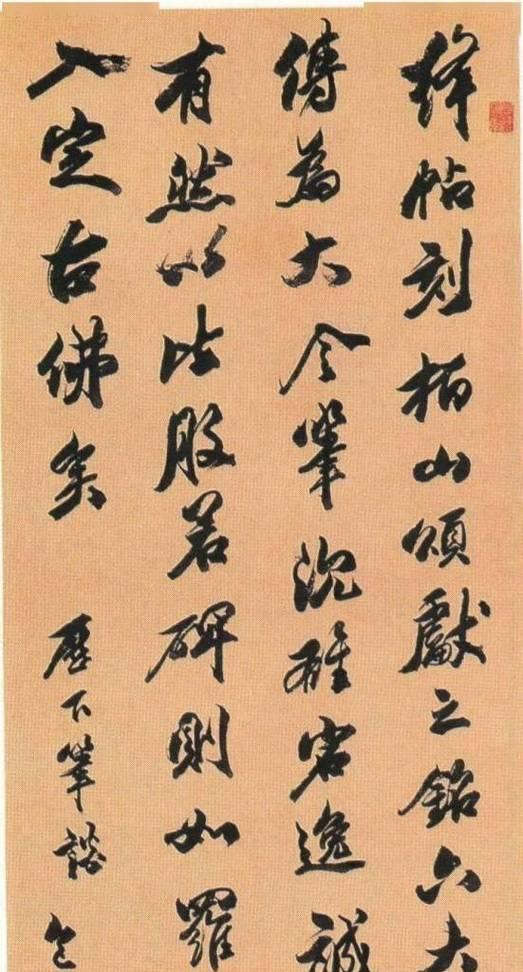 絳帖刻栢山頌獻之銘六
傳為大令筆沉雄宕逸誠
有然以比般若碑則如羅
入定古佛矣
歷下筆談